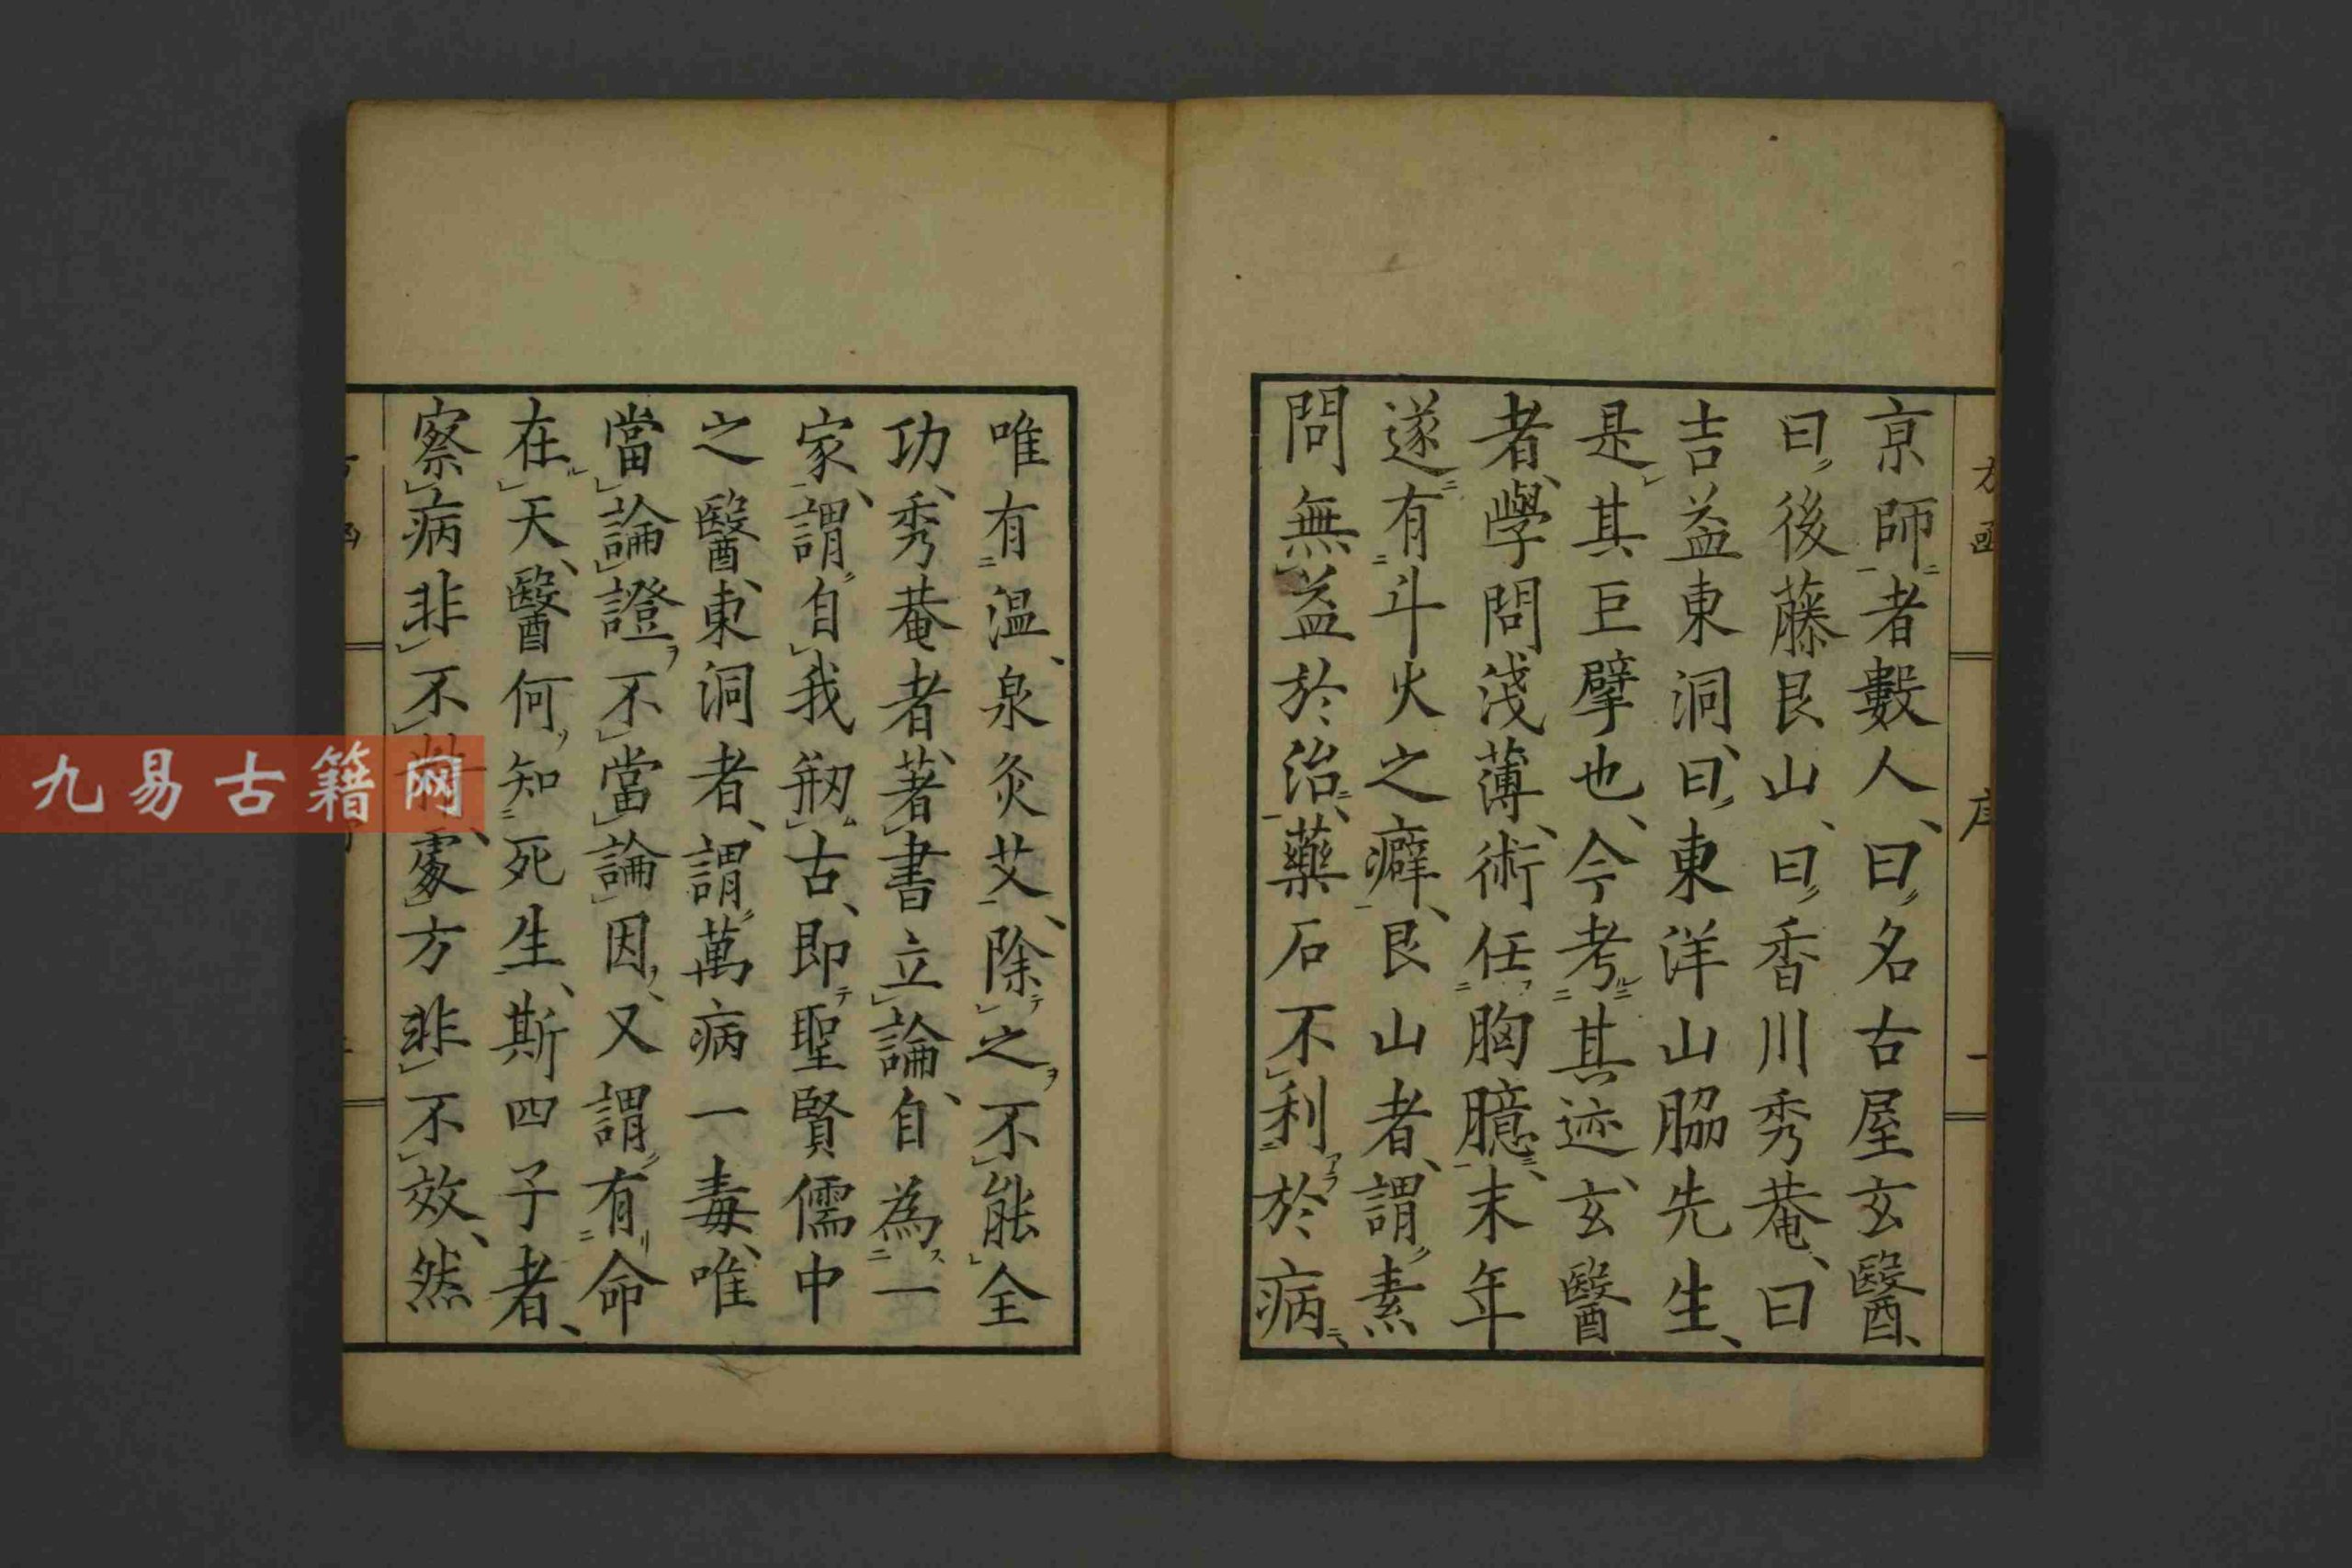 京師者數人、曰名古屋玄醫、
曰後藤艮山、曰香川秀菴、曰
吉益東洞、曰東洋山脇先生、
是其巨擘也、今考其迹、玄醫
者、學問淺薄、術任胸臆、末年
遂有斗火之癖、艮山者、謂素
問無益於治、藥石不利於病、
唯有温泉灸艾、除之不能全
功、秀菴者、著書立論、自為一
家、謂自我剏古、即聖賢儒中
之醫、東洞者、謂萬病一毒、唯
當論證、不當論因、又謂有命
在天、醫何知死生、斯四子者、
察病非不
處方非不效、然
方函
序
一
九易古籍网